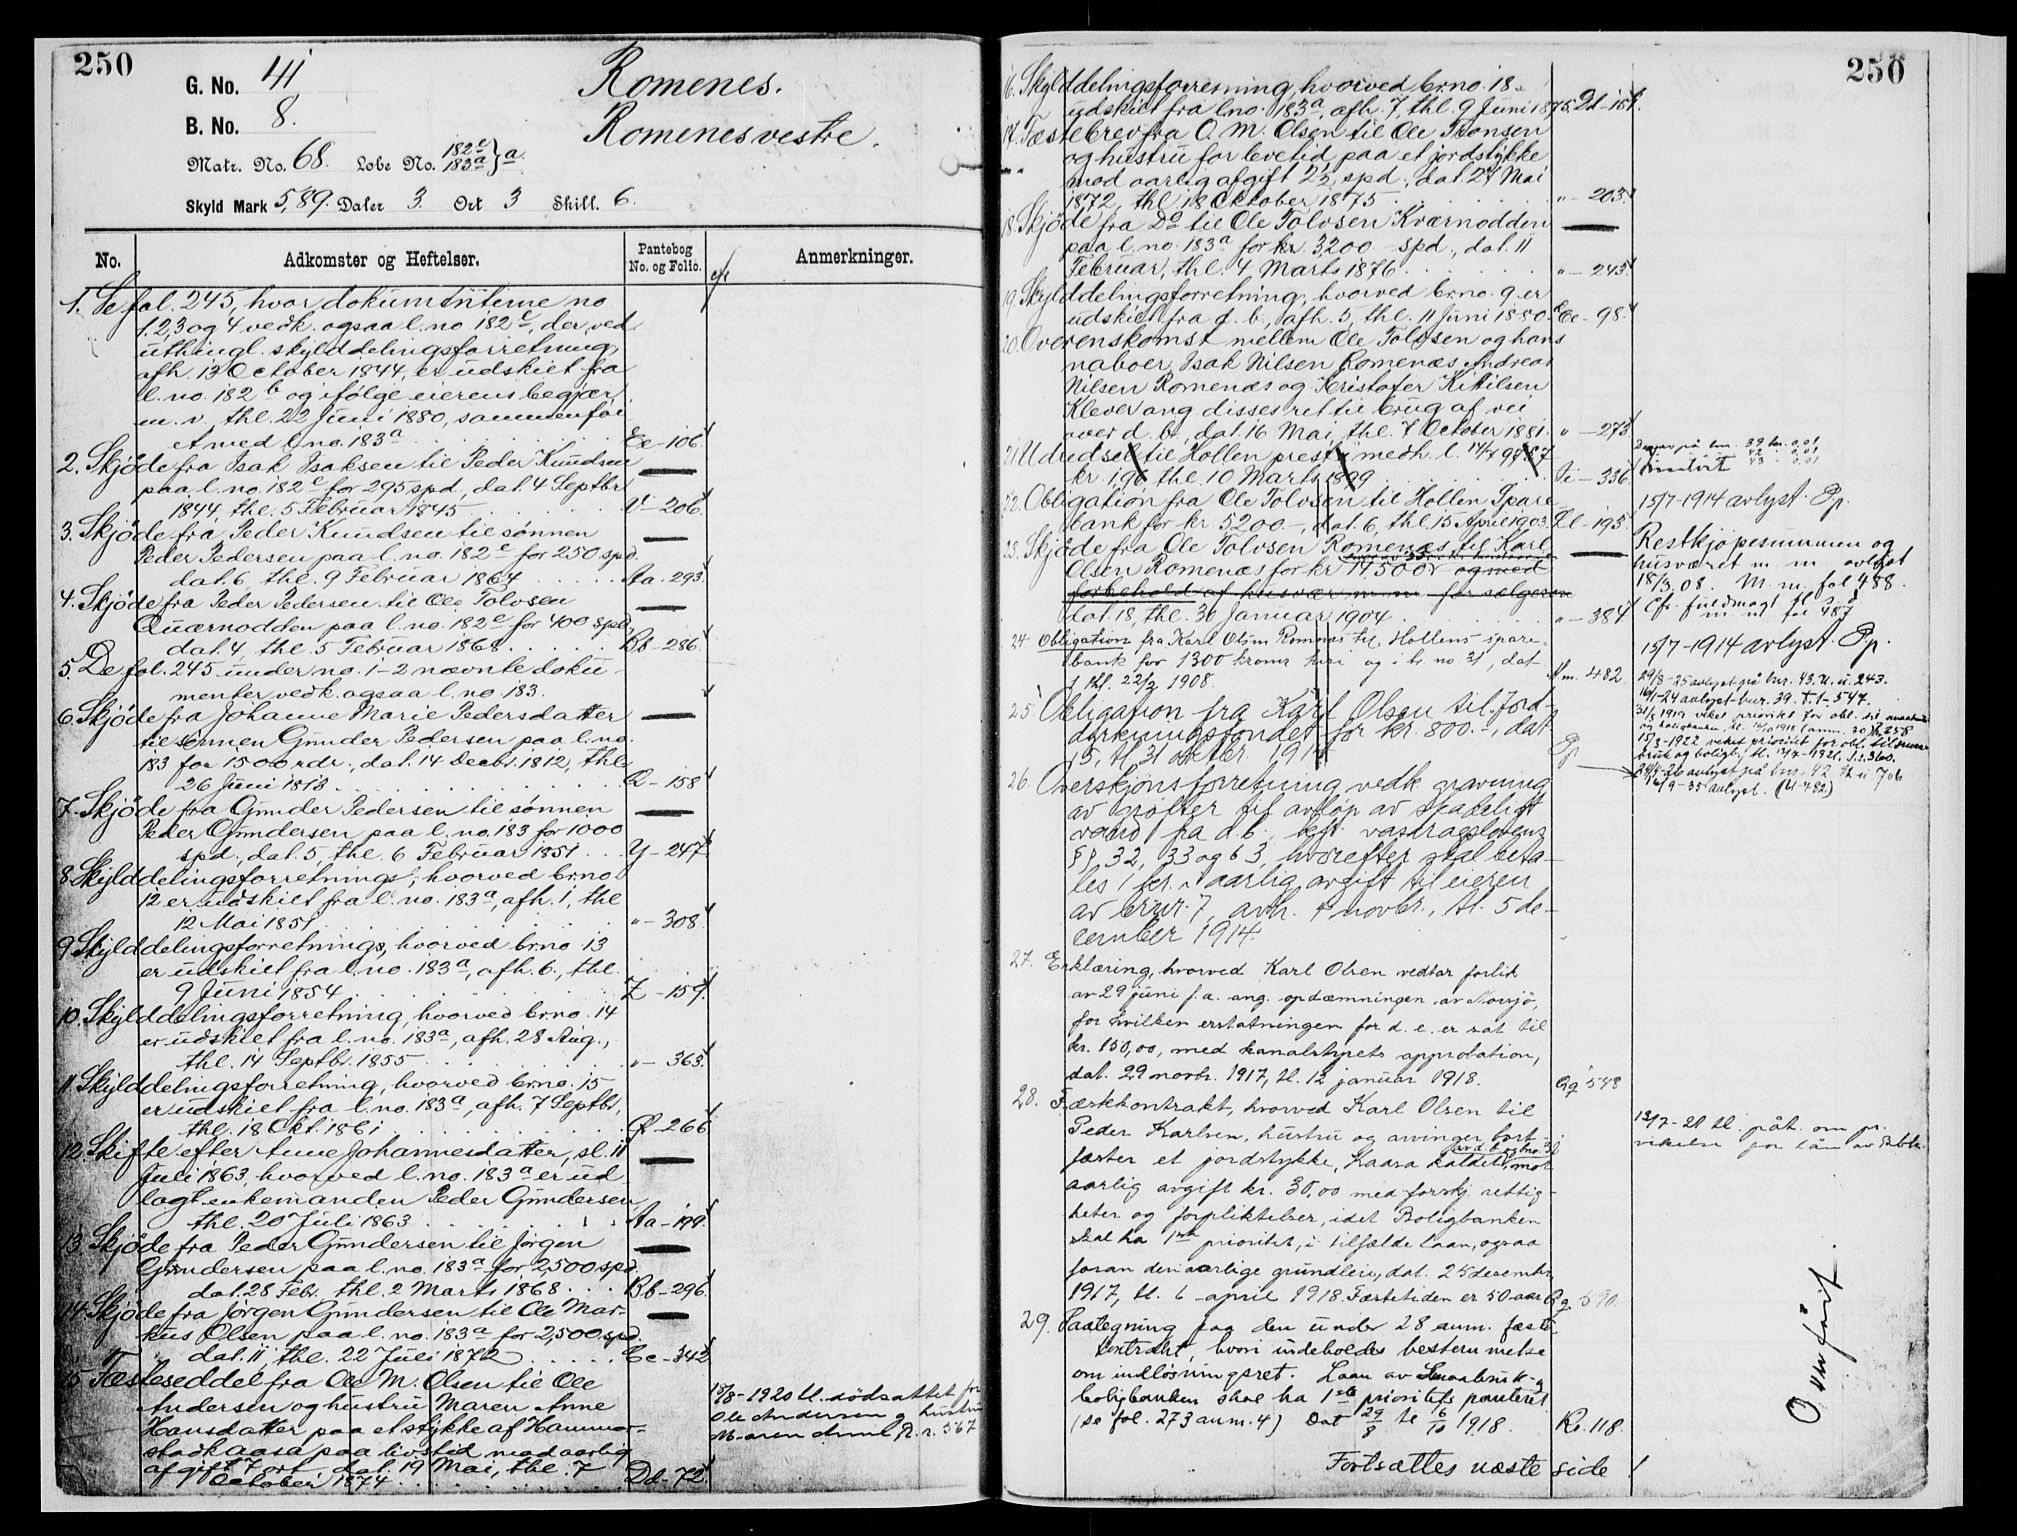 250
G. No. 41
B. No. 8.
Matr. No. 68. Løbe No. 182c 183a } a.
Skyld Mark 5,89. Daler 3. Ort 3 Skill. 6.
Romenes.
Romenes vestre.
No. Adkomster og Heftelser. Pantebog No. og Folio. Anmerkninger.
1. Se fol. 245, hvor dokumenterne no
1.2,3 og 4 vedk. ogsaa l.no 182c, der ved
uthingl. skylddelingsforretning
afh. 13 October 1844, er udskilt fra
l.no. 182b og ifølge eierens begjær.
m.v. thl. 22 Juni 1880, sammenföi
et med l.no. 183a Ee-106
2. Skjöde fra Isak Isaksen til Peder Knudsen
paa l.no. 182c for 295 spd, dat. 4 Septbr
1844, thl. 5 Februar 1845 V-206.
3. Skjöde fra Peder Knudsen til sønnen
Peder Pedersen paa l.no. 182c for 250 spd.
dat. 6, thl. 9 Februar 1864 Aa-293.
4. Skjöde fra Peder Pedersen til Ole Tolvsen
Quærnodden paa l.no. 182c for 400 spd,
dat. 4, thl. 5 Februar 1868 Bb-286.
5. De fol. 245 under no. 1-2 nævnte doku-
menter vedk. ogsaa l.no. 183.
6. Skjöde fra Johanne Marie Pedersdatter
til sönnen Gunder Pedersen paa l.no.
183 for 1500 rdr., dat. 14 Decbr. 1812, thl.
26 Juni 1813 Q-158
7. Skjöde fra Gunder Pedersen til sönnen
Peder Gundersen paa l.no. 183 for 1000
spd., dat. 5, thl. 6 Februar 1851 Y-247.
8. Skylddelingsforretnings, hvorved brno
12 er udskilt fra l.no. 183a, afh. 1, thl
12 Mai 1851 "-308.
9. Skylddelingsforretnings, hvorved brno 13
er udskilt fra l.no. 183a, afh. 6., thl.
9 Juni 1854 Z-159.
10. Skylddelingsforretning, hvorved brno. 14
er udskilt fra l.no. 183a, afh. 28 Aug.,
thl. 14 Septbr. 1855 "-363.
11. Skylddelingsforretning, hvorved brno. 15
er udskilt fra l.no. 183a, afh. 7 Septbr,
thl. 18 Okt. 1861 -266
12. Skifte efter Anne Johannesdatter, sl. 11
Juli 1863, hvorved l.no. 183a er ud
lagt enkemanden Peder Gundersen,
thl. 20 Juli 1863 Aa-199.
13. Skjöde fra Peder Gundersen til Jørgen
Gundersen paa l.no. 183a for 2,500 spd.
dat. 28 Febr. thl. 2 Marts 1868 Bb-296.
14. Skjöde fra Jørgen Gundersen til Ole Mar-
kus Olsen paa l.no. 183a for 2,500 spd.
dat. 11, thl. 22 Juli 1872 Cc-342
15. Fæsteseddel fra Ole M. Olsen til Ole
Andersen og hustru Maren Anne
Hansdatter paa et stykke af Hammer-
stadkaasa paa livstid mod aarlig
afgift 7 ort dat. 19 Mai, thl. 7
October 1874 Dd-72.
15/8-1920 tl. dödsattest for
Ole Andersen og hustru
Maren Anne 567
250
16. Skylddelingsforretning, hvorved brno. 18
udskilt fra lno. 183a, afh. 7, thl. 9 Juni 1875. Dd-151.
17. Fæstebrev fra O. M. Olsen til Ole Tronsen
og hustru for levetid paa et jordstykke
mod aarlig afgift 2½ spd., dat. 27 Mai
1872, thl. 18 Oktober 1875 "-203.
18. Skjöde fra Do til Ole Tolvsen Kværnodden
paa l.no. 183a for kr. 3,200 spd., dat. 11
Februar, thl. 4 Marts 1876 "-245.
19. Skylddelingsforretning, hvorved brno. 9 er
udskilt fra d. b., afh. 5, thl. 11 Juni 1880. Ee-98.
20. Overenskomst mellem Ole Tolvsen og hans
naboer Isak Nilsen Romenæs, Andreas
Nilsen Romenæs og Kristofer Kittilsen
Klever ang. disses ret til brug af vei
over d. b., dat. 16 Mai, thl. 7 October 1881. "-273
21. Udredsel til Hollen prest. medh. l. 14/4 97. 87
kr. 1,96, thl. 10 Marts 1899 Ii-336.
22. Obligation fra Ole Tolvsen til Hollen Spare-
bank for kr. 5200.-, dat. 6, thl. 15 April 1903. Ll-193.
23. Skjöde fra Ole Tolvsen Romenæs til Karl
Olsen Romenæs for kr. 14,500 og med
forbehold af husvær m.m. for sælgeren
dat. 18, thl. 30 Januar 1904 "-384
24. Obligation fra Karl Olsen Romnæs til Hollens spare-
bank for 1300 kroner heri og i br. no. 31, dat
f thl. 22/3 1908. Mm. 482.
25. Obligation fra Karl Olsen til Jord-
dyrkningsfondet for kr. 800.-, dat
15, tl 31 oktbr. 1914 Pp
26. Overskjönsforretning vedk. gravning
av grøfter til avløp av skadeligt
vand fra d. b., kfr. vasdragslovens
§§ 32, 33 og 63, hvorefter skal beta-
les 1 kr. i aarlig avgift til eieren
av brnr. 7, avh. 4 novbr., tl. 5 de-
cember 1914.
27. Erklæring, hvorved Karl Olsen vedtar forlik
av 29 juni f.a. ang. opdæmningen av Norsjö,
for hvilken erstatningen for d. e. er sat til
kr. 150,00, med kanalstyrets approbation,
dat. 29 novbr. 1917, tl. 12 januar 1918. Qq 548
28. Fæstekontrakt, hvorved Karl Olsen til
Peder Karlsen, hustru og arvinger bort-
fæster et jordstykke, Kaasa kaldet, av d. b. og bno. 31 mot
aarlig avgift kr. 30,00 med forskj. rettig-
heter og forpliktelser, idet Boligbanken
skal ha 1ste prioritet, i tilfælde laan, ogsaa
foran den aarlige grundleie, dat. 25 december
1917, tl. 6 april 1918. Fæstetiden er 50 aar Qq 590.
29. Paategning paa den under 28 anm. fæste
kontrakt, hvori indeholdes bestemmelse
om indlösningsret. Laan av Smaabruk- og
boligbanken skal ha 1ste prioritets panteret
(se fol. 273 anm. 4) Dat 29/8 tl 6/10 1918. Rr. 118.
Fortsættes næste side !
bnr. 39 kr. 0,01
42 - 0,01
43 - 0,01
15/7-1914 avlyst. Pp.
Restkjøpesummen og
husværet m m avlyst
18/3 08. M.m. fol 488.
Cfr. fuldmagt tl s. d.
m. m fol 487
15/7-1914 avlyst. Pp.
29/8-25 avlyst på bnr. 43. U. u. 243.
16/1-24 avlyst bnr. 39. T.t-547.
31/5 1919 veket prioritet for obl. til
15/3-1922 veket prioritet for obl. til smaa-
bruk og boligb.
24/4-26 avlyst på bnr. 42 U u 706
4/9-35 avlyst. (4-482)
13/7-21 tl. påt. om pr.
vikelse for lån av
Overført.